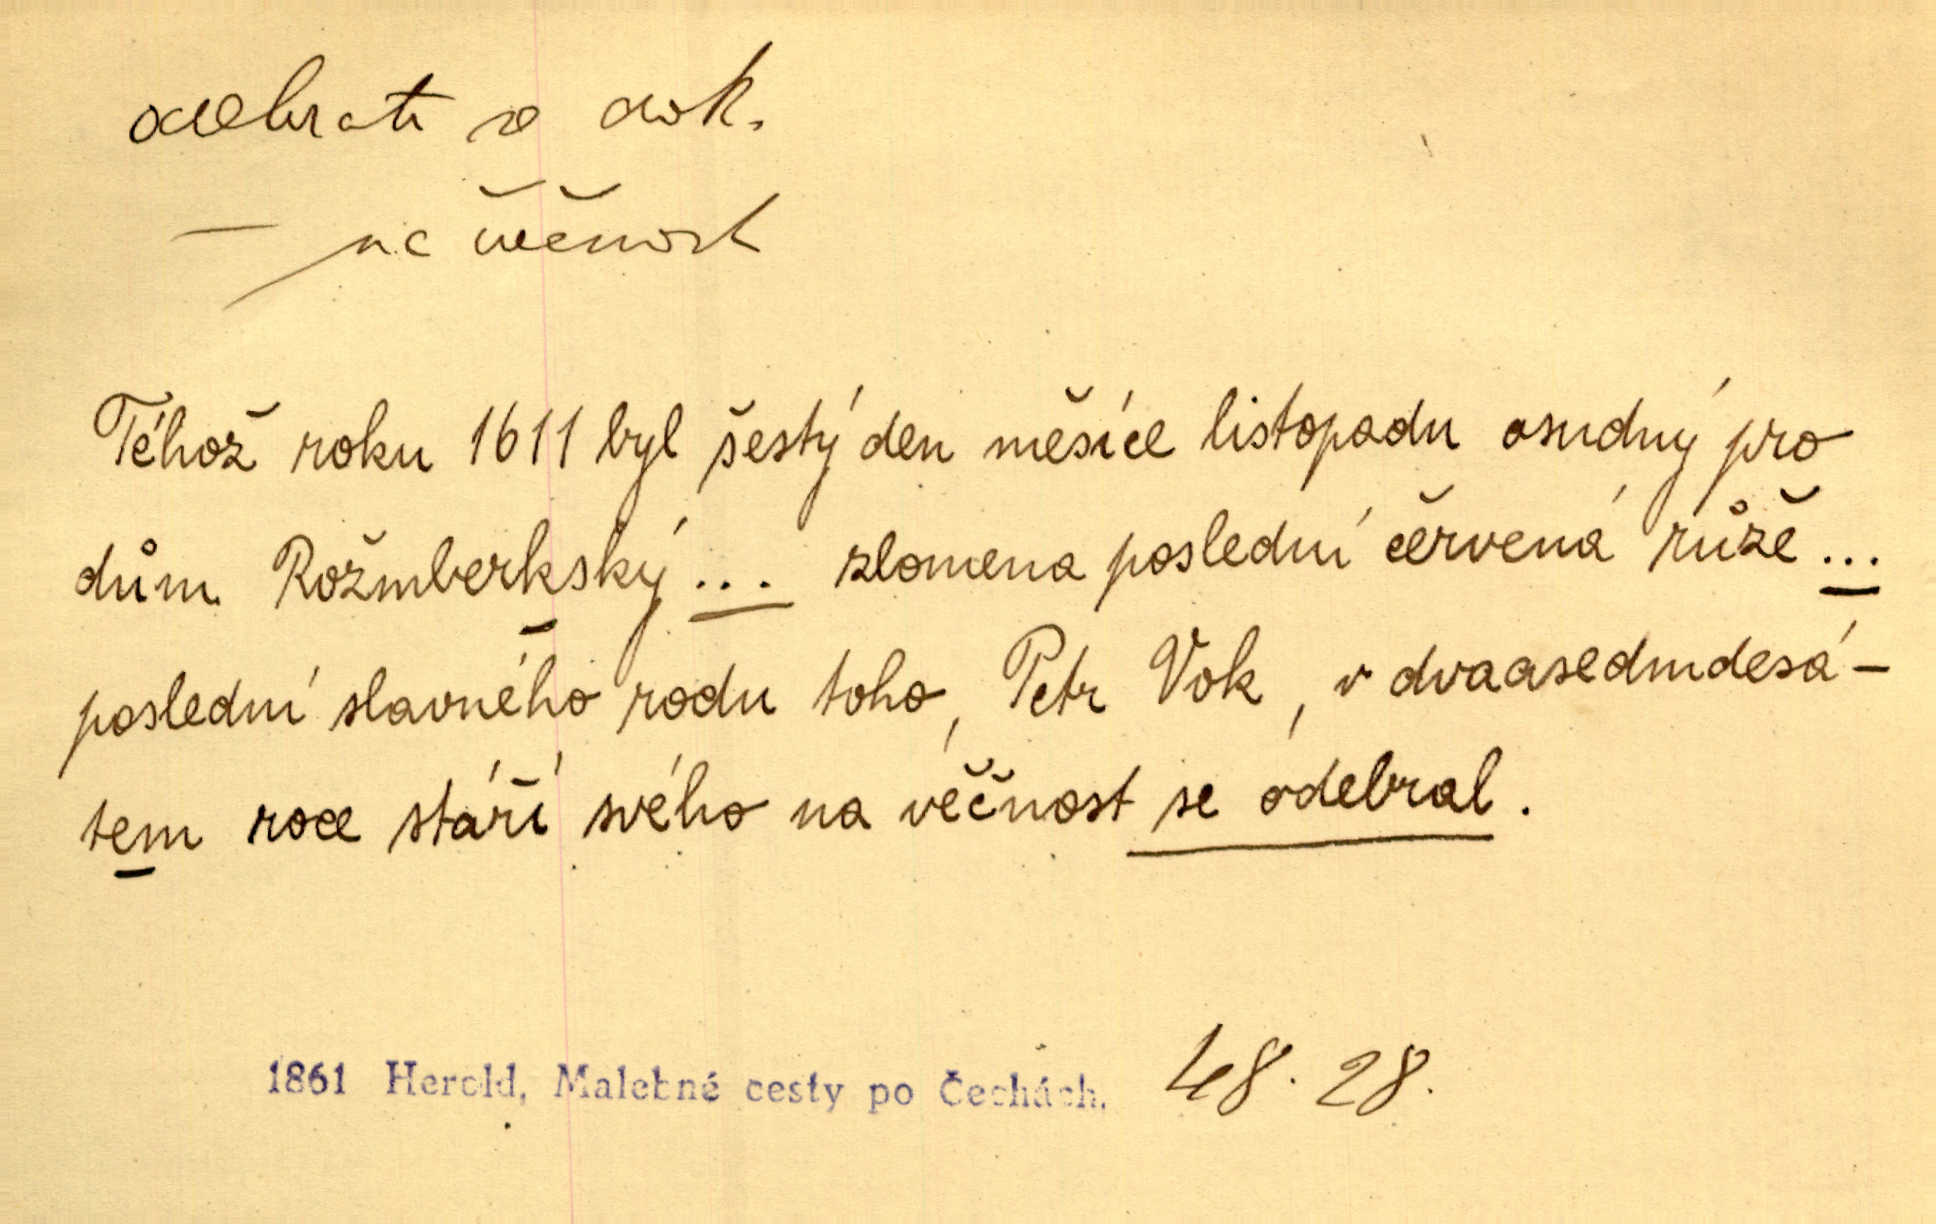 odebrati se dok.
— na věčnost
Téhož roku 1611 byl šestý den měsíce listopadu osudný pro
dům Rožmberkský ... zlomena poslední červená růže ...
poslední slavného rodu toho, Petr Vok, v dvaasedmdesá-
tém roce stáří svého na věčnost se odebral.
1861 Herold, Malebné cesty po Čechách. 48. 28.